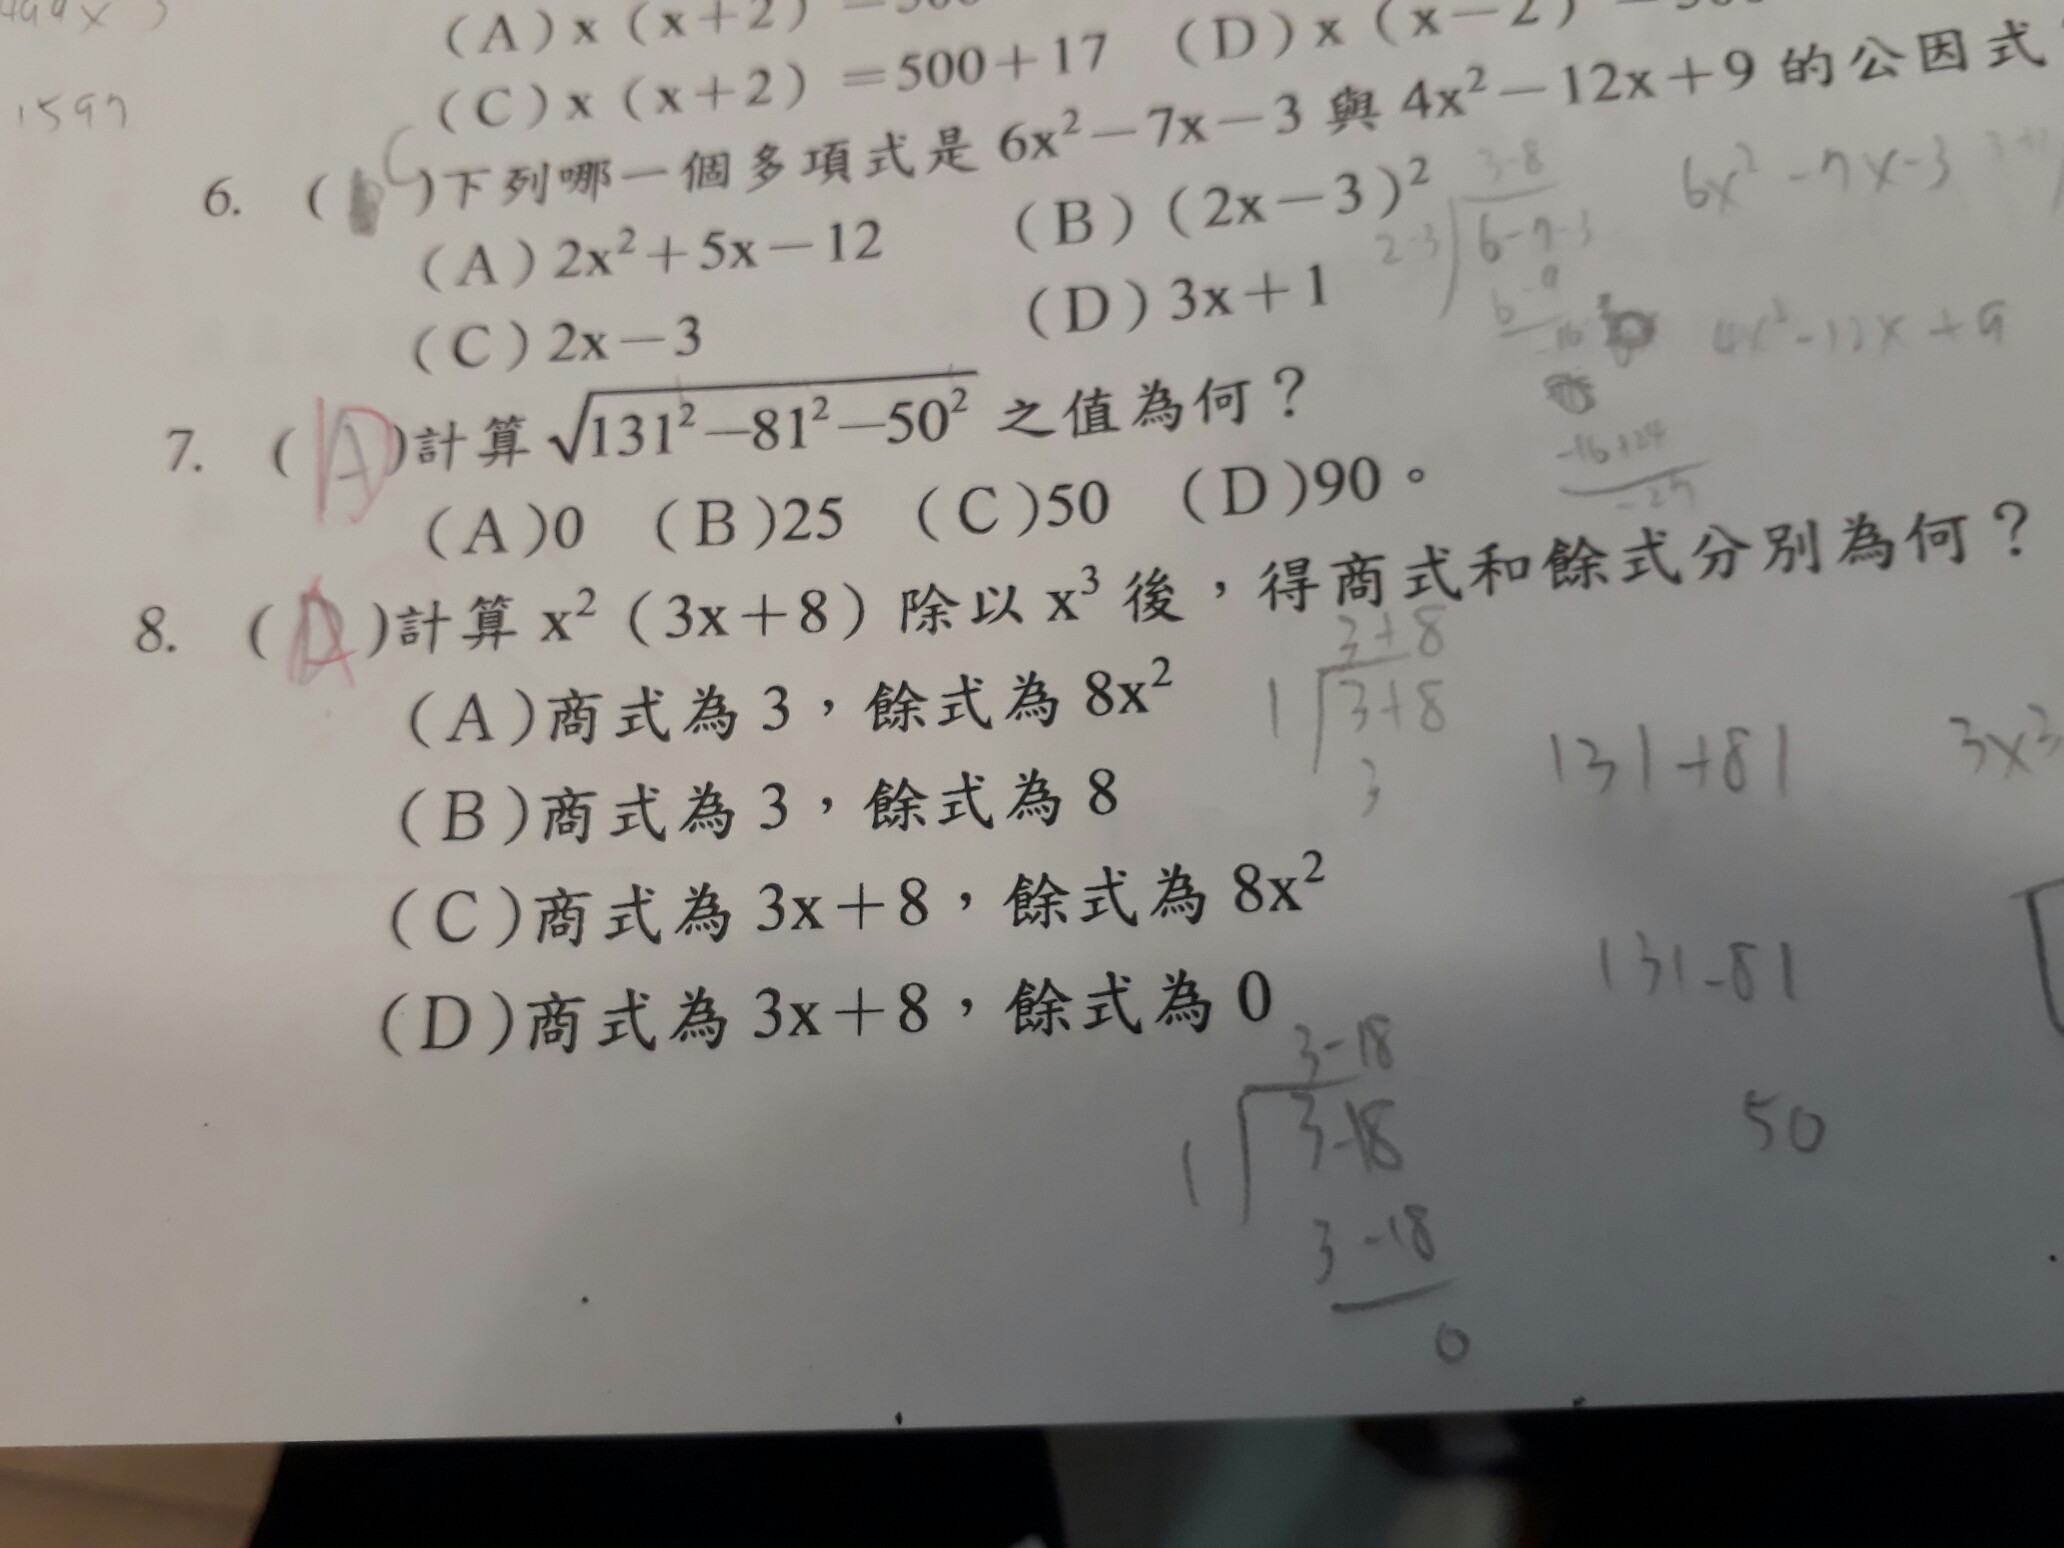 (A) x (x+2)
(D) x (x-2)
(C) x (x+2) =500+17
1597
6. ( C )下列哪一個多項式是 6x²-7x-3 與 4x²-12x+9 的公因式
(A) 2x²+5x-12 (B) (2x-3)²
(C) 2x-3 (D) 3x+1
3-8
2-3 6-7-3
6-9
-16+24
-27
6x²-7x-3
4x²-12x+9
7. ( A )計算 √131²-81²-50² 之值為何？
(A)0 (B)25 (C)50 (D)90。
8. ( A )計算 x² (3x+8) 除以 x³ 後，得商式和餘式分別為何？
(A)商式為 3，餘式為 8x²
(B)商式為 3，餘式為 8
(C)商式為 3x+8，餘式為 8x²
(D)商式為 3x+8，餘式為 0
3+8
1 3+8
3
131+81
3x³
131-81
50
3-18
1 3-18
3-18
0